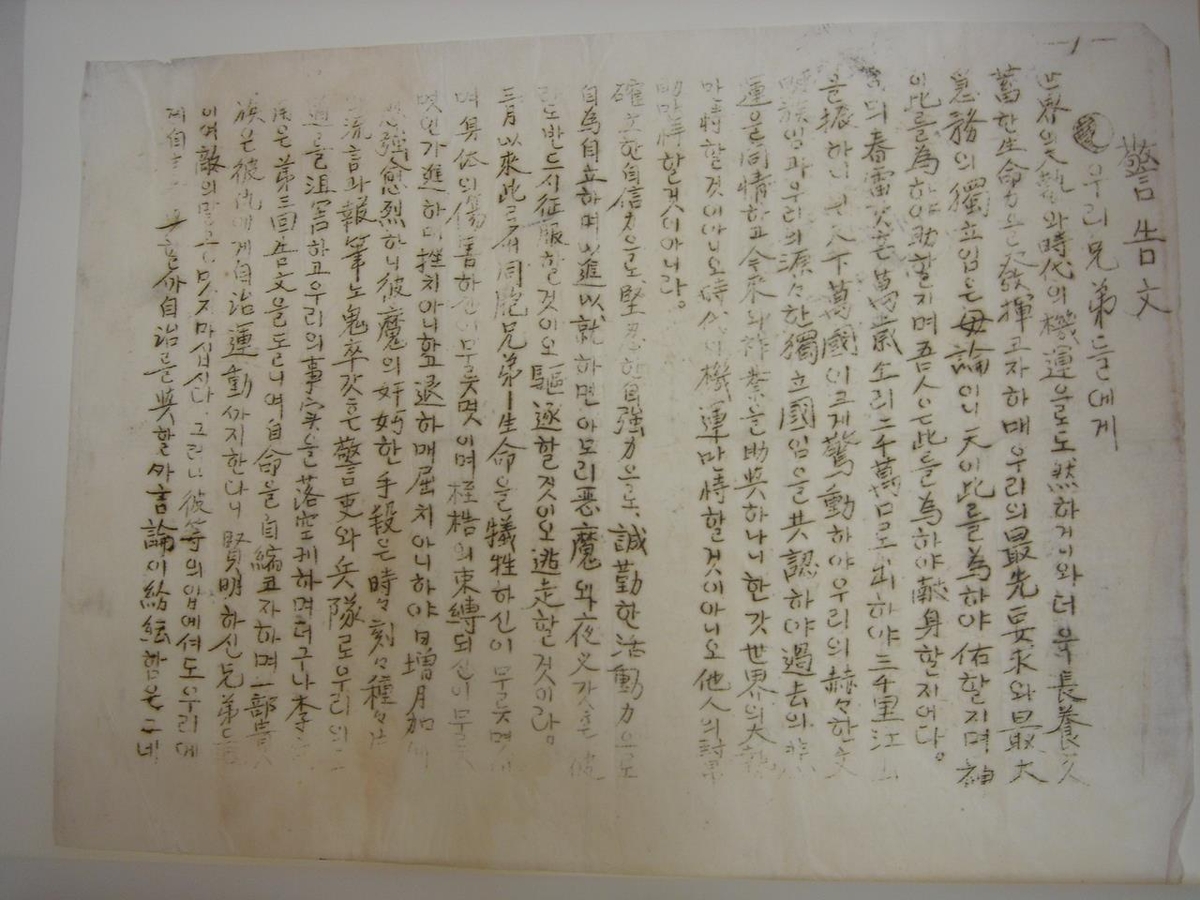 一1一
警告文
우리兄弟들에게
世界의大勢와時代의機運으로도然하거니와더욱長養久
蓄한生命力을發揮코자하매우리의最先要求와最大
急務의獨立임은毋論이니天이此를為하야佑할지며神
이此를為하야助할지며吾人은此를為하야獻身할지어다。
의春雷갓흔萬歲生리二千萬口로出하야三千里江山
을振하니天下萬國이크게驚動하야우리의赫々한文
明族임과우리의源々한獨立國임을共認하야過去의悲
運을同情하고今來의祚業을助與하나니한갓世界의大勢
만恃할것이아니오時代의機運만恃할것이아니오他人의
助만恃할것이아니라。
確立한自信力으로、堅忍한自強力으로、誠勤한活動力으로
自為自立하며以進以就하면아모리惡魔와夜叉갓흔彼
라도반드시征服할것이오驅逐할것이오逃走할것이라。
三月以來此로由同胞兄弟ㅣ生命을犧牲하신이무릇몃
며身体의傷害하신이무릇몃이며桎梏의束縛되신이무릇
몃인가進하되挫치아니하고退하매屈치아니하야日增月加
愈強愈烈하니彼魔의奸妁한手段은時々刻々種々
流言과報筆노鬼卒갓흔警吏와兵隊로우리의
를沮害하고우리의事実을落空케하며더구나李
用은第三回告文을도르니여自命을自縮코자하며一部貴
族은彼仇에게自治運動까지한다니賢明하신兄弟들
이여敵의말을밋지마십시다.그러나彼等의입에셔도우리에
게自 를許할가自治를與할까言論이紛紜함은그네